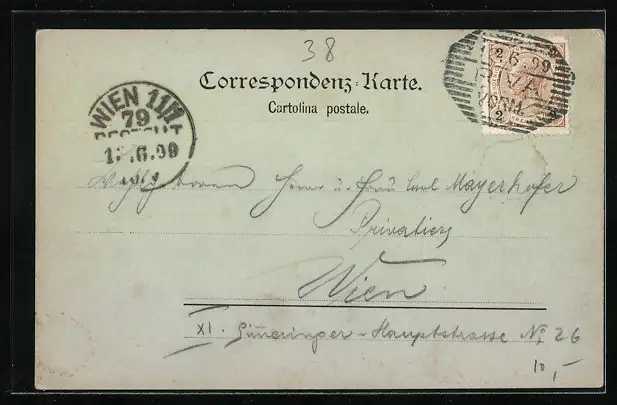 38
Correspondenz-Karte.
Cartolina postale.
2 2
.6.99
RIVA
2
WIEN 11/1
79
BESTELLT
1 .6.99
Wohlgeboren Herrn u. Frau Carl Mayerhofer
Privatiers
Wien
XI. Simmeringer-Hauptstrasse No 26
10,-